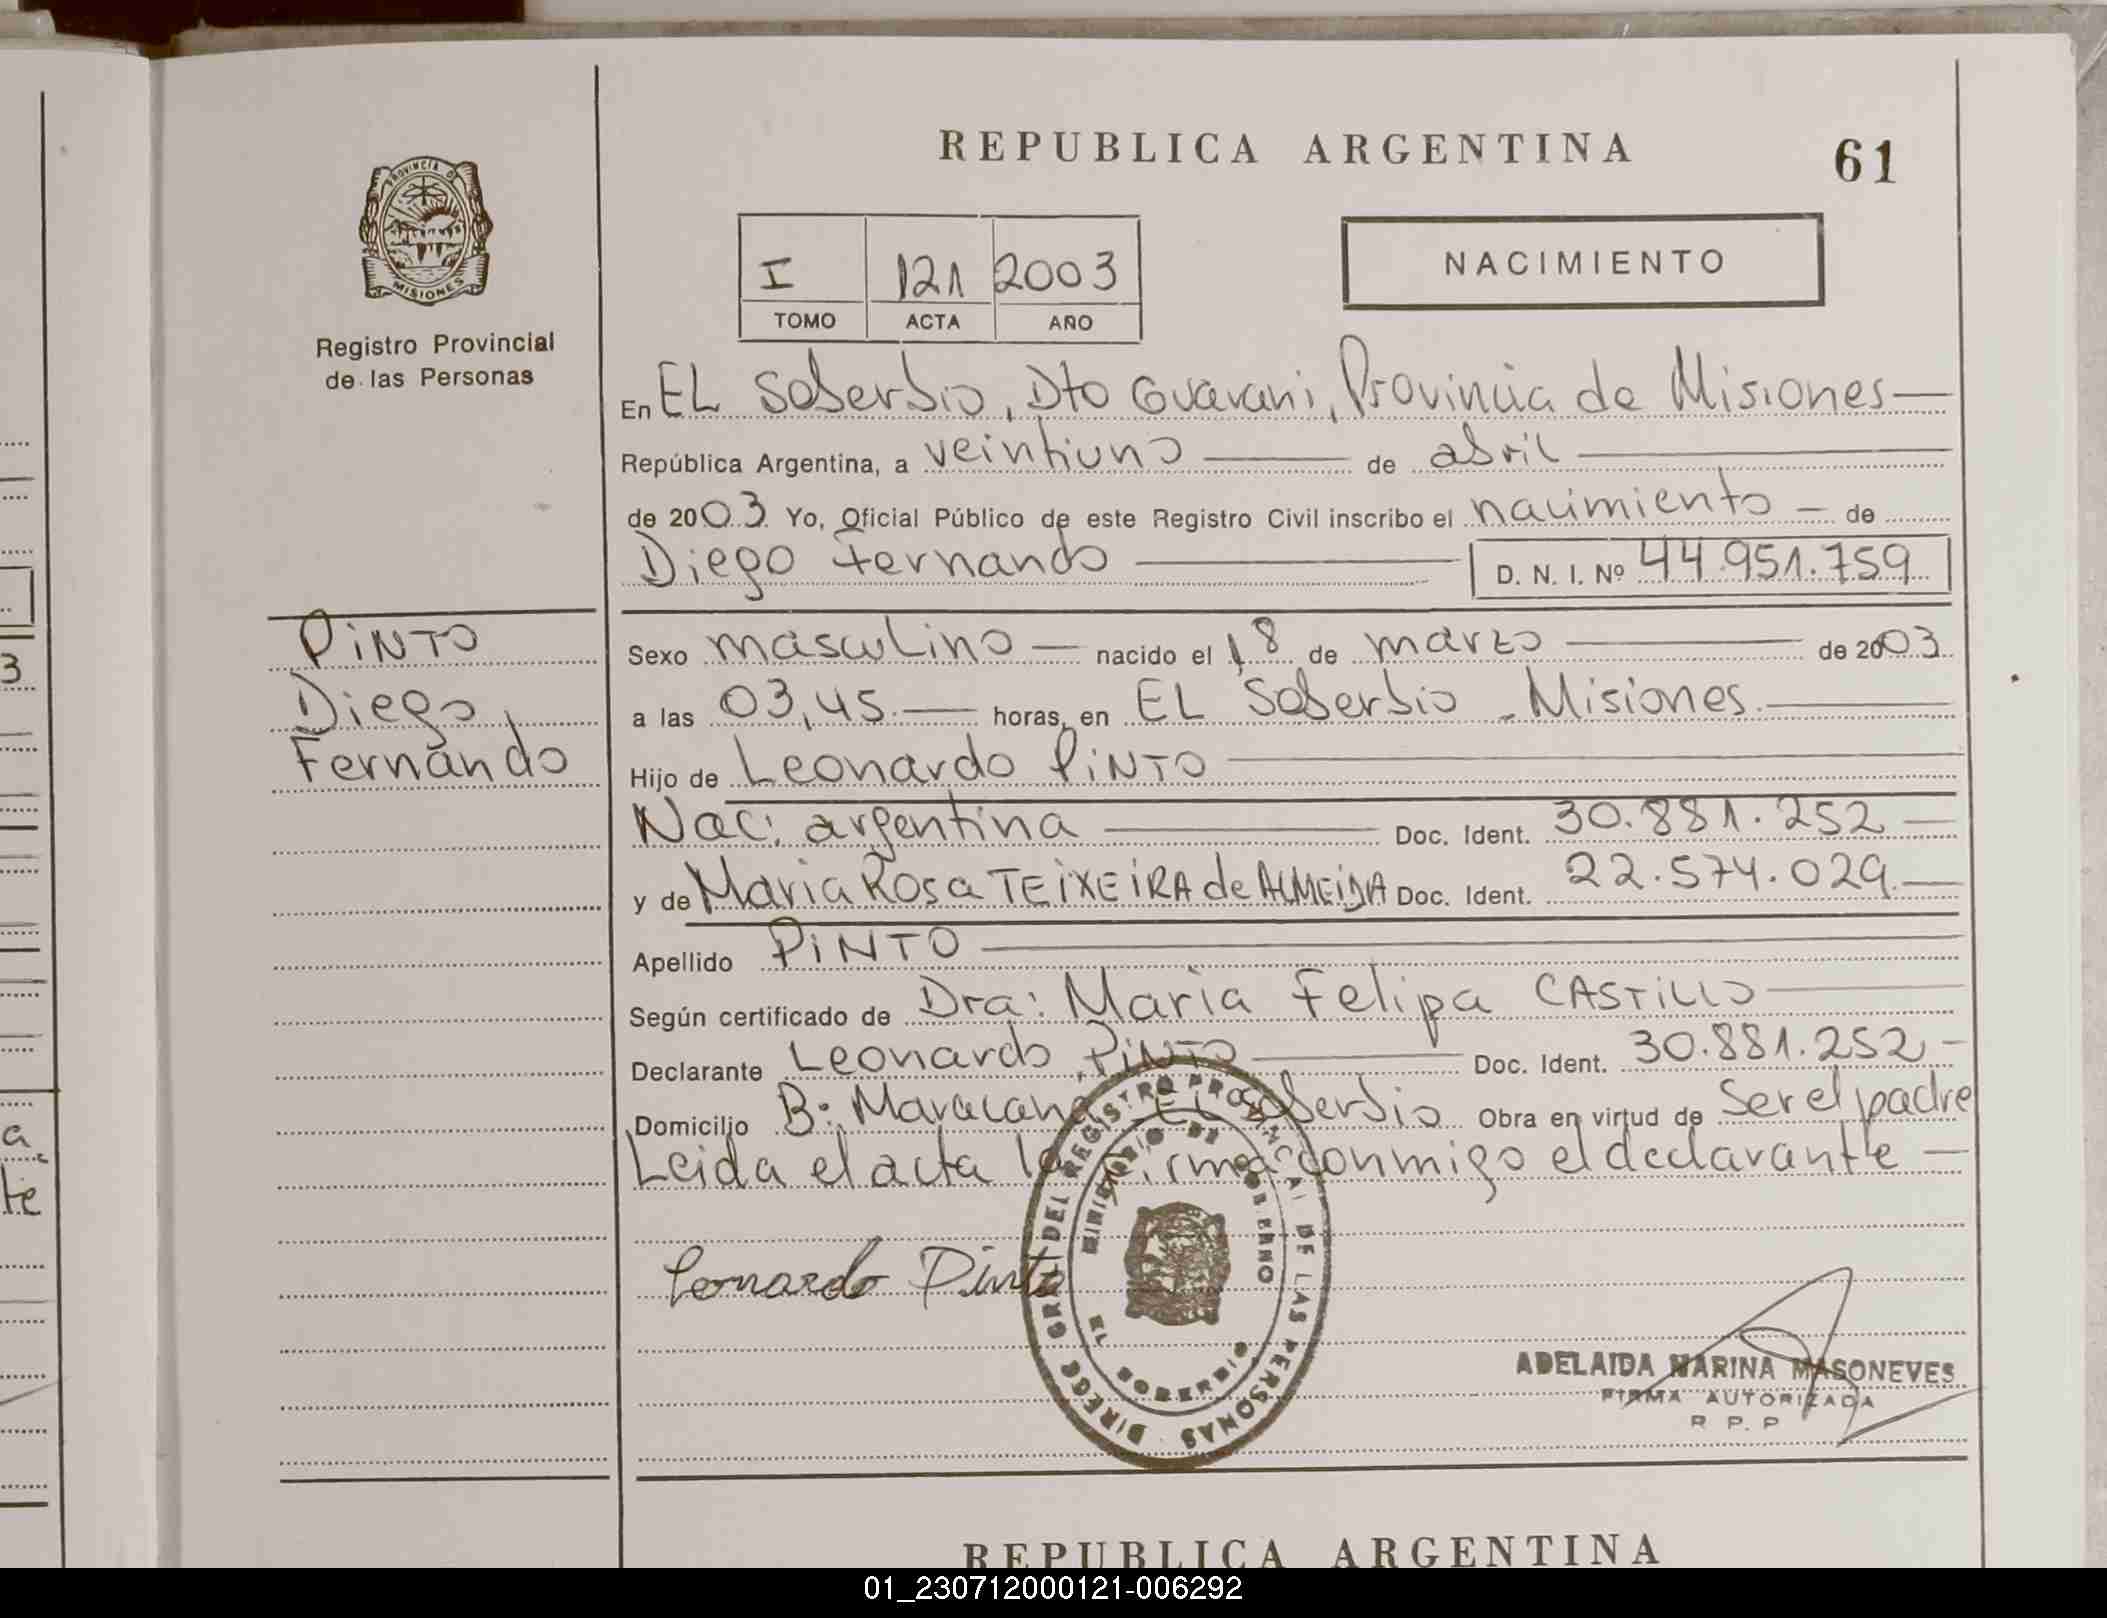 REPUBLICA ARGENTINA
61
PROVINCIA DE
MISIONES
Registro Provincial
de las Personas
I 121 2003
TOMO ACTA AÑO
NACIMIENTO
En EL Soberbio, Dto Guarani, Provincia de Misiones
República Argentina, a veintiuno de abril
de 2003 Yo, Oficial Público de este Registro Civil inscribo el nacimiento de
Diego Fernando D. N. I. Nº 44.951.759
PINTO
Diego,
Fernando
Sexo masculino nacido el 18 de marzo de 2003
a las 03,45 horas, en EL Soberbio - Misiones
Hijo de Leonardo PINTO
Nac: argentina Doc. Ident. 30.881.252
y de Maria Rosa TEIXEIRA de ALMEIDA Doc. Ident. 22.574.029
Apellido PINTO
Según certificado de Dra: Maria Felipa CASTILLO
Declarante Leonardo PINTO Doc. Ident. 30.881.252
Domicilio B: Maracana EL Soberbio Obra en virtud de Ser el padre
Leida el acta la firma conmigo el declarante
Leonardo Pinto
REGISTRO PROVINCIAL DE LAS PERSONAS
MINISTERIO DE GOBIERNO
EL SOBERBIO
ADELAIDA MARINA MASONEVES
FIRMA AUTORIZADA
R P. P
REPUBLICA ARGENTINA
3
a
te
01_230712000121-006292